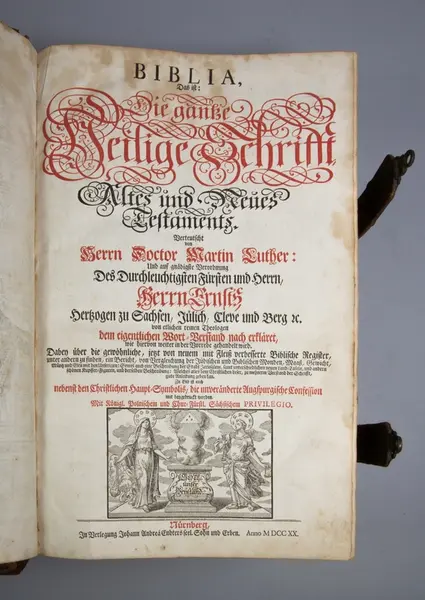 BIBLIA,
Das ist:
Die gantze
Heilige Schrifft
Altes und Neues
Testaments.
Verteutscht
von
Herrn Doctor Martin Luther:
Und auf gnädigste Verordnung
Des Durchleuchtigsten Fürsten und Herrn,
Herrn Ernsts
Hertzogen zu Sachsen, Jülich, Cleve und Berg ꝛc.
von etlichen reinen Theologen
dem eigentlichen Wort-Verstand nach erkläret,
wie hiervon weiter in der Vorrede gehandelt wird.
Dabey über die gewöhnliche, jetzt von neuem mit Fleiß verbesserte Biblische Register,
unter andern zu finden, ein Bericht, von Vergleichung der Jüdischen und Biblischen Monden, Maaß, Gewicht,
Zu Ende ist auch
nebenst den Christlichen Haupt-Symbolis, die unveränderte Augspurgische Confession
mit beygedruckt worden.
Mit Königl. Polnischem und Chur-Fürstl. Sächsischem PRIVILEGIO.
Nürnberg,
In Verlegung Johann Andreä Endters seel. Sohn und Erben. Anno M DCC XX.